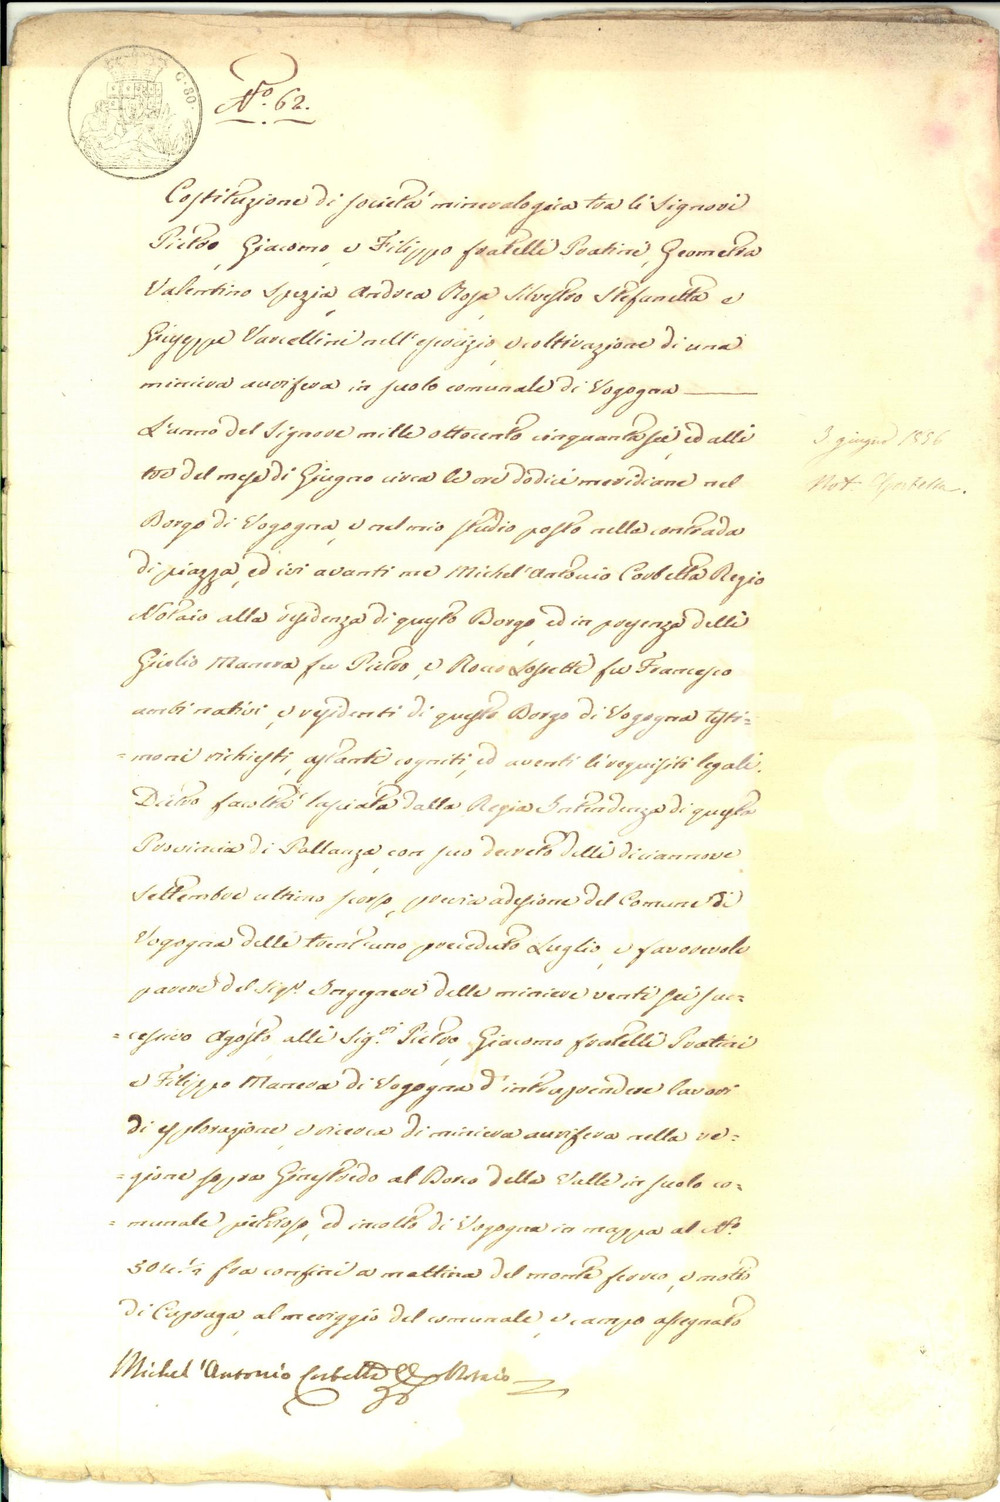 C. 80.
N.º 62.
Costituzione di società mineralogica tra li Signori
Pietro, Giacomo, e Filippo fratelli Pratini, Geometra
Valentino Spezia, Andrea Rosa, Silvestro Stefanetta e
Giuseppe Vercellini nell'esercizio, e coltivazione di una
miniera aurifera in suolo comunale di Vogogna
L'anno del Signore mille ottocento cinquantasei, ed alli
tre del mese di Giugno circa le ore dodici meridiane nel
Borgo di Vogogna, e nel mio studio posto nella contrada
di piazza, ed ivi avanti me Michel'Antonio Corbetta Regio
Notaio alla residenza di questo Borgo, ed in presenza delli
Giulio Manera fu Pietro, e Rocco Lossetti fu Francesco
ambi nativi, e residenti di questo Borgo di Vogogna testi=
=moni richiesti, astanti cogniti, ed aventi li requisiti legali.
Dietro facoltà lasciata dalla Regia Intendenza di questa
Provincia di Pallanza, con suo decreto delli diciannove
Settembre ultimo scorso, previa adesione del Comune di
Vogogna delli trent'uno preceduto Luglio, e favorevole
parere del Sig.r Ingegnere delle miniere venti sei suc=
=cessivo Agosto, alli Sig.ri Pietro, Giacomo fratelli Pratini
e Filippo Manera di Vogogna d'intraprendere lavori
di esplorazione, e ricerca di miniera aurifera nella re=
=gione sopra Ginestredo al Borco della Valle in suolo co=
=munale pietroso, ed incolto di Vogogna in mappa al N.º
fra confini a mattina del monte ferreo, e motto
di Capraga, al meriggio del comunale, e campo assegnato
Michel'Antonio Corbetta Notaio
3 giugno 1856
Not. Corbetta.